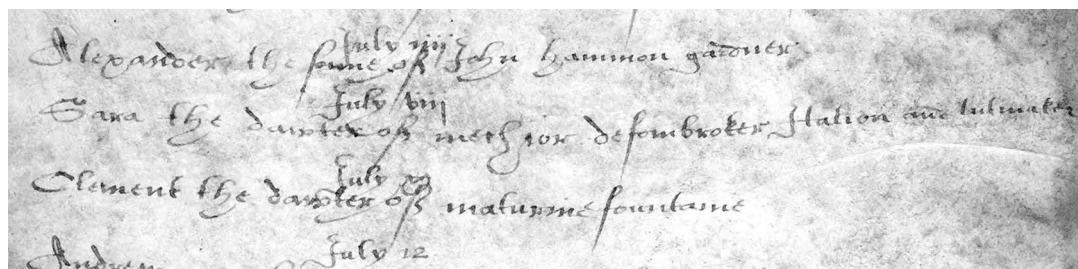 July iiij
Alexander the sonne of John hammon gardner
July viij
Sara the dawter of mechior desombroker Italion and lutmaker
July
Clement the dawter of maturine fountaine
July 12
Andrew